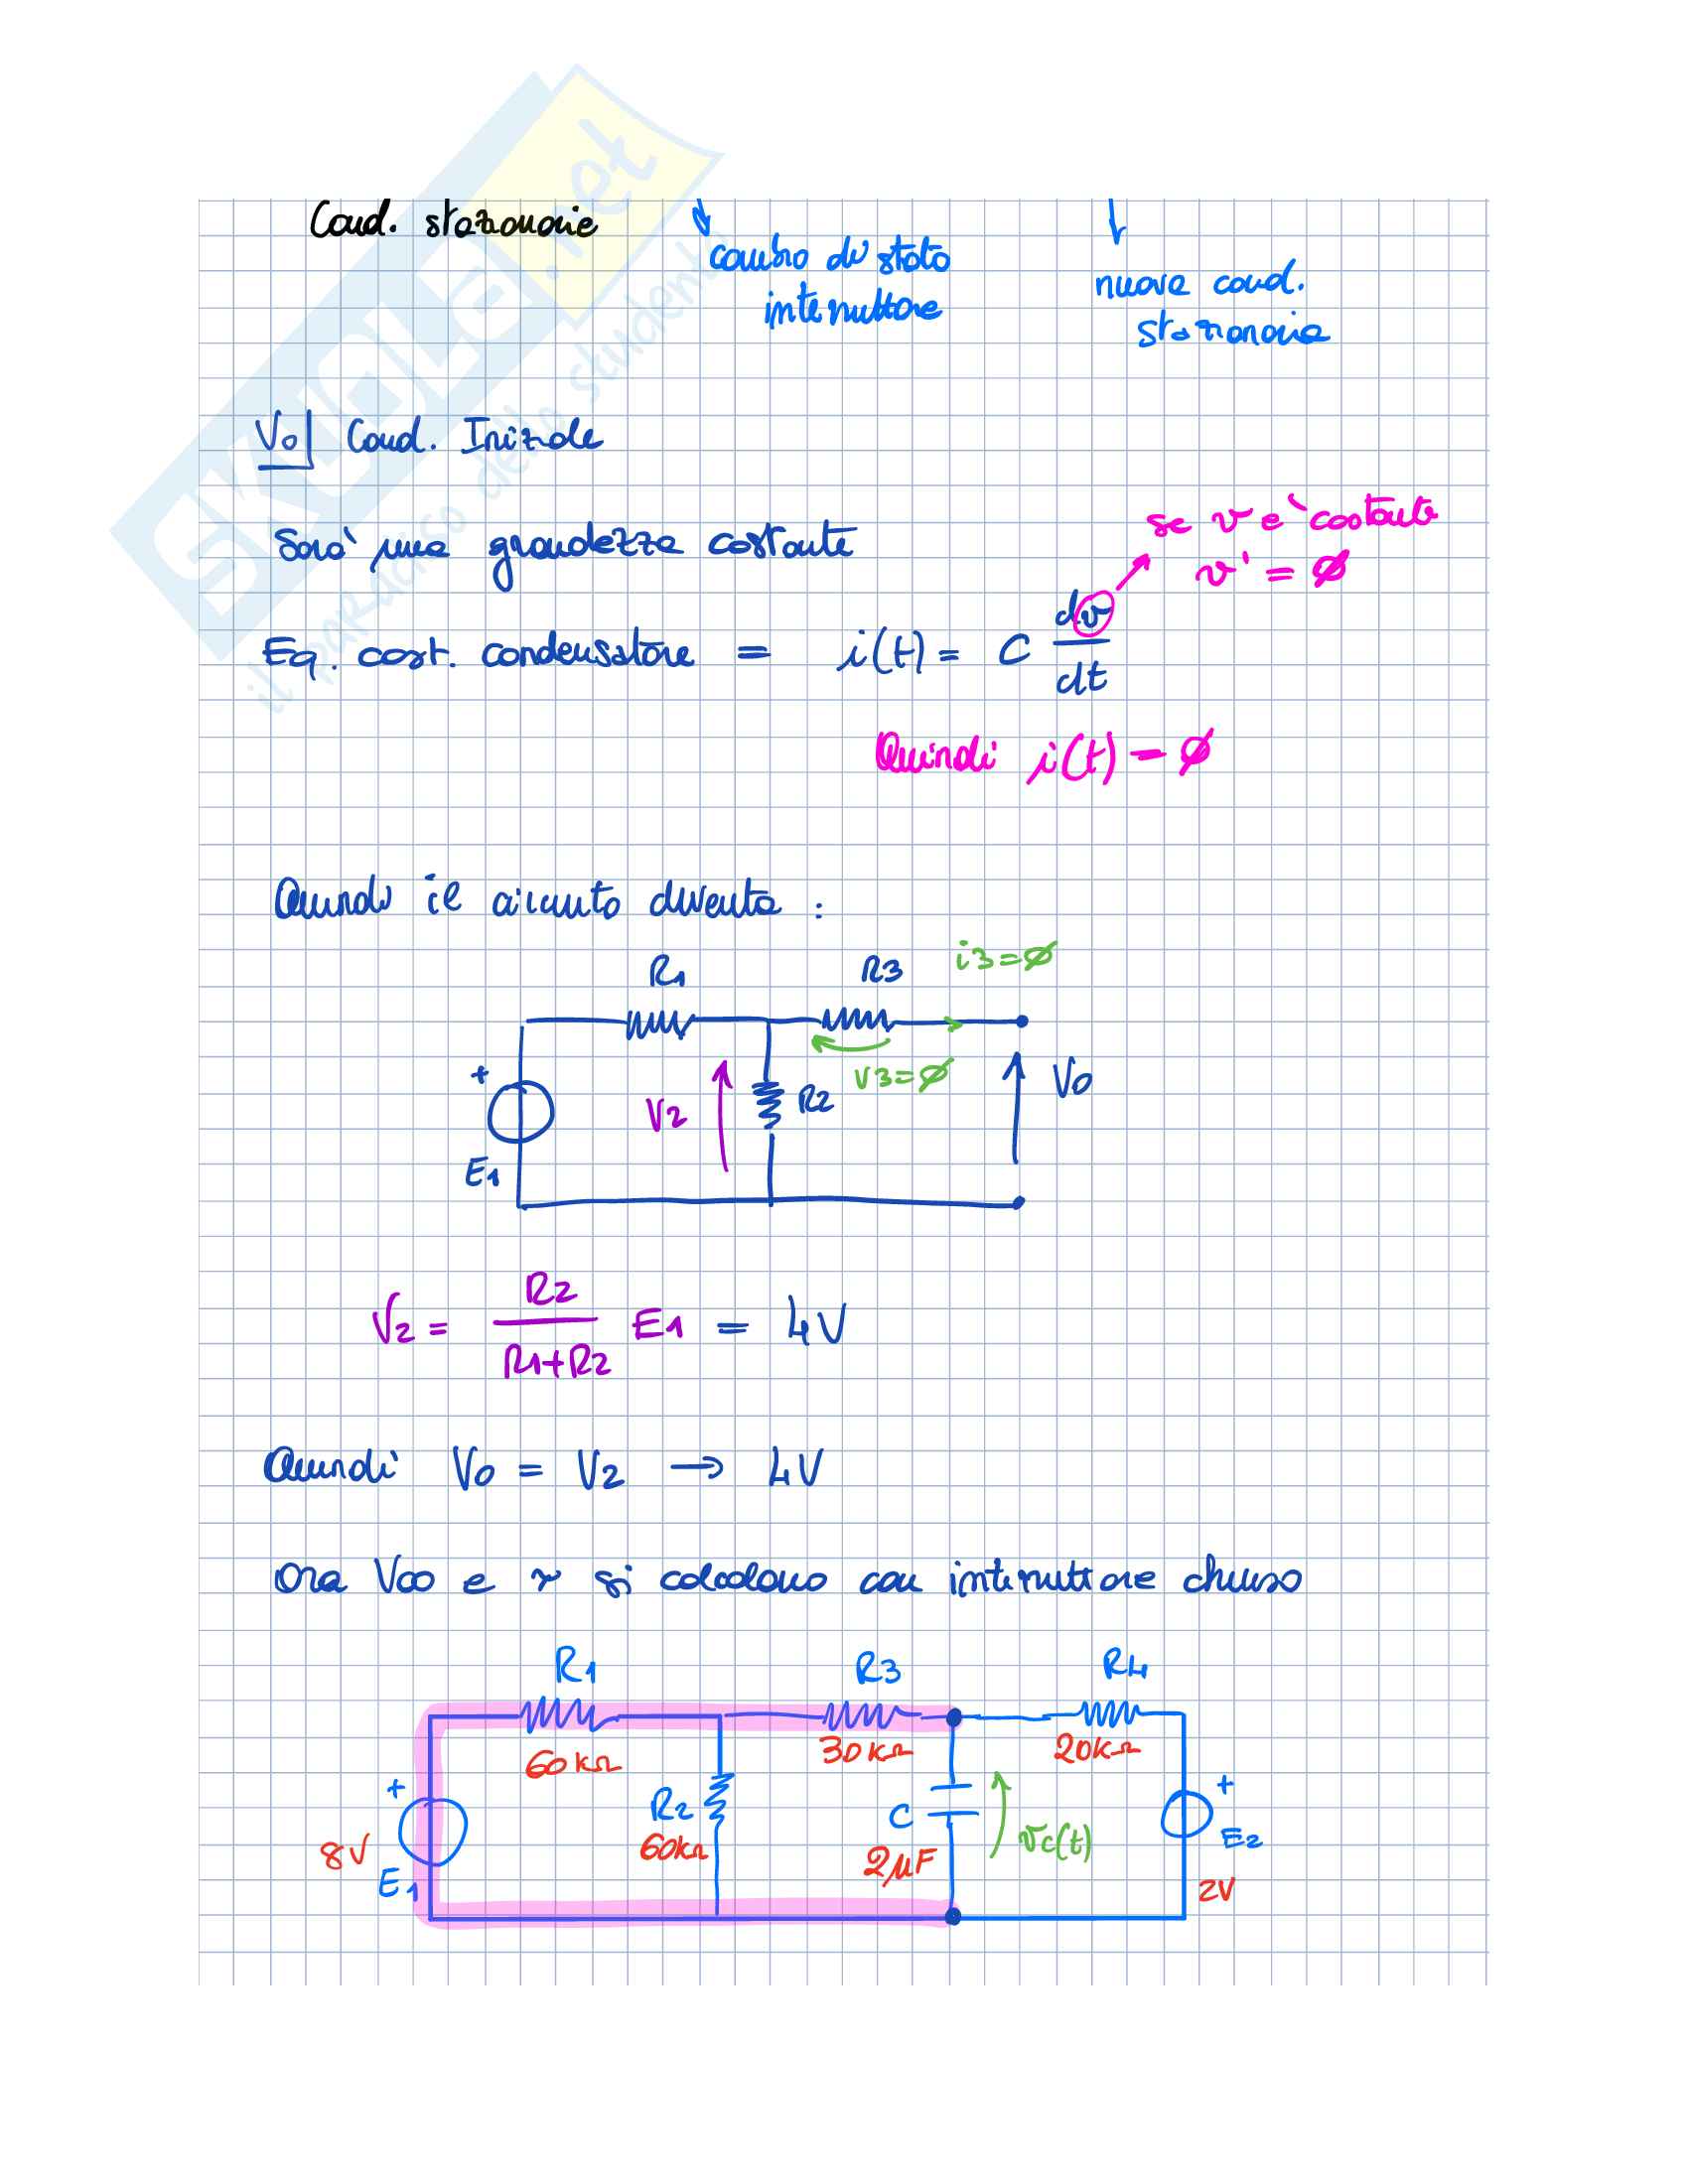 SKUOLa.net
il paradiso dello studente
Cond. stazionarie
cambio di stato
interruttore
nuove cond.
stazionarie
V0 Cond. Iniziale
Sarà una grandezza costante
se v e' costante
v' = Ø
Eq. cost. condensatore = i(t) = C dv/dt
Quindi i(t) = Ø
Quindi il circuito diventa :
R1 R3 i3=Ø
+ V2 R2 v3=Ø V0
E1
V2 = R2/(R1+R2) E1 = 4V
Quindi V0 = V2 → 4V
Ora V∞ e τ si calcolano con interruttore chiuso
R1 R3 R4
60kΩ 30kΩ 20kΩ
+ R2 C vc(t) +
8V 60kΩ 2μF E2
E1 2V